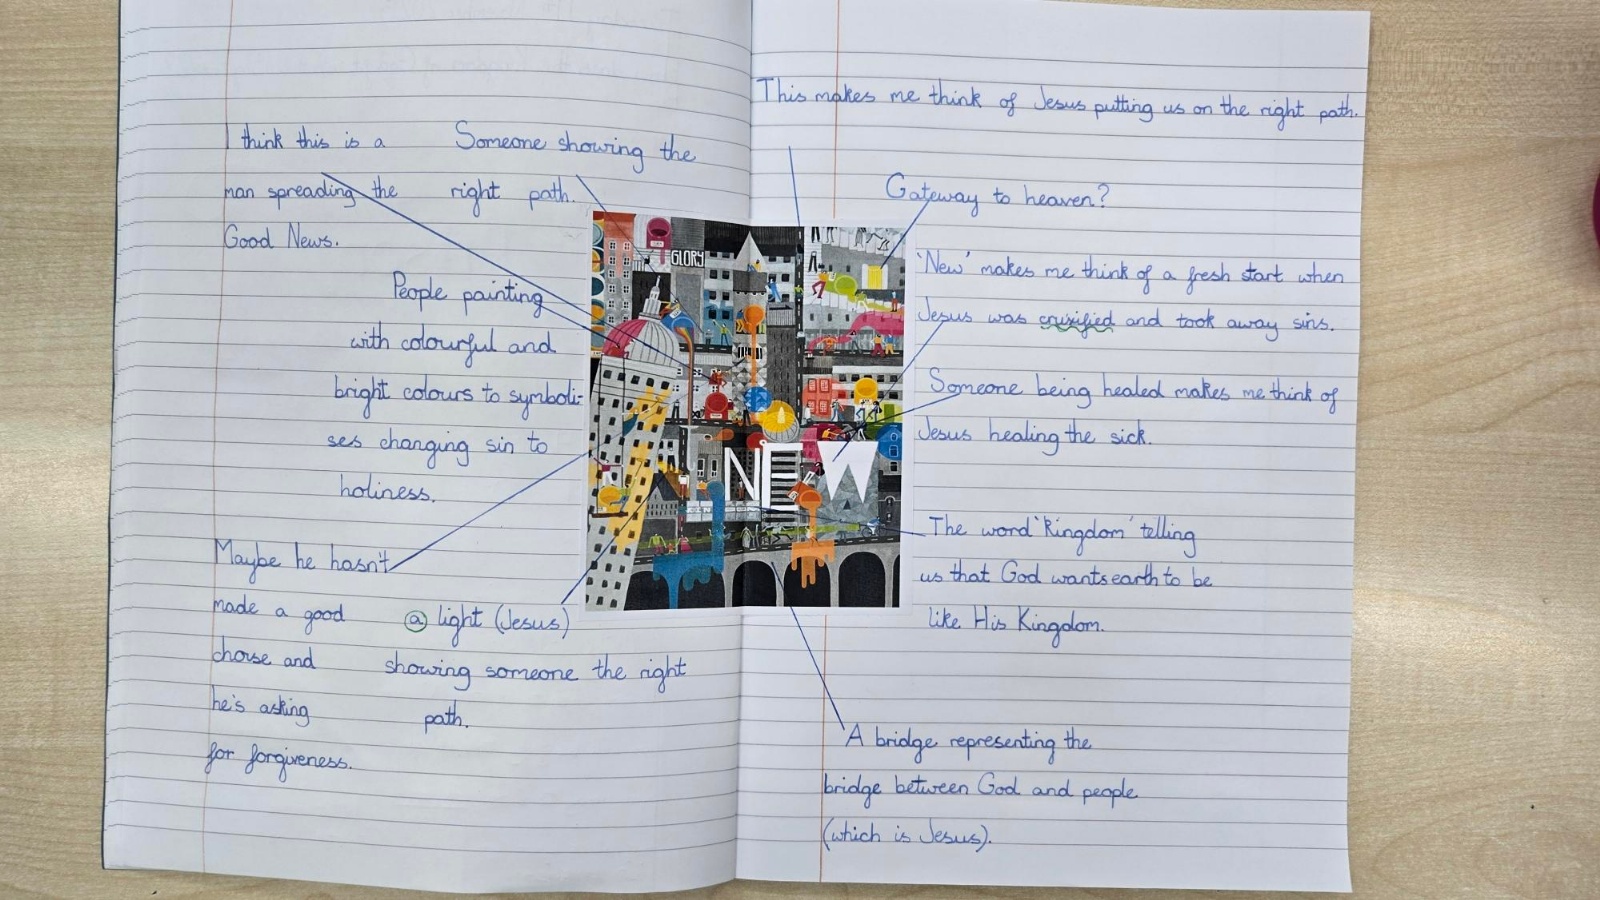 I think this is a
man spreading the
Good News.
Someone showing the
right path.
People painting
with colourful and
bright colours to symboli-
ses changing sin to
holiness.
Maybe he hasn't
made a good
choise and
he's asking
for forgiveness.
a light (Jesus)
showing someone the right
path.
GLORY
NEW
This makes me think of Jesus putting us on the right path.
Gateway to heaven?
'New' makes me think of a fresh start when
Jesus was cruxified and took away sins.
Someone being healed makes me think of
Jesus healing the sick.
The word 'Kingdom' telling
us that God wants earth to be
like His Kingdom.
A bridge representing the
bridge between God and people
(which is Jesus).